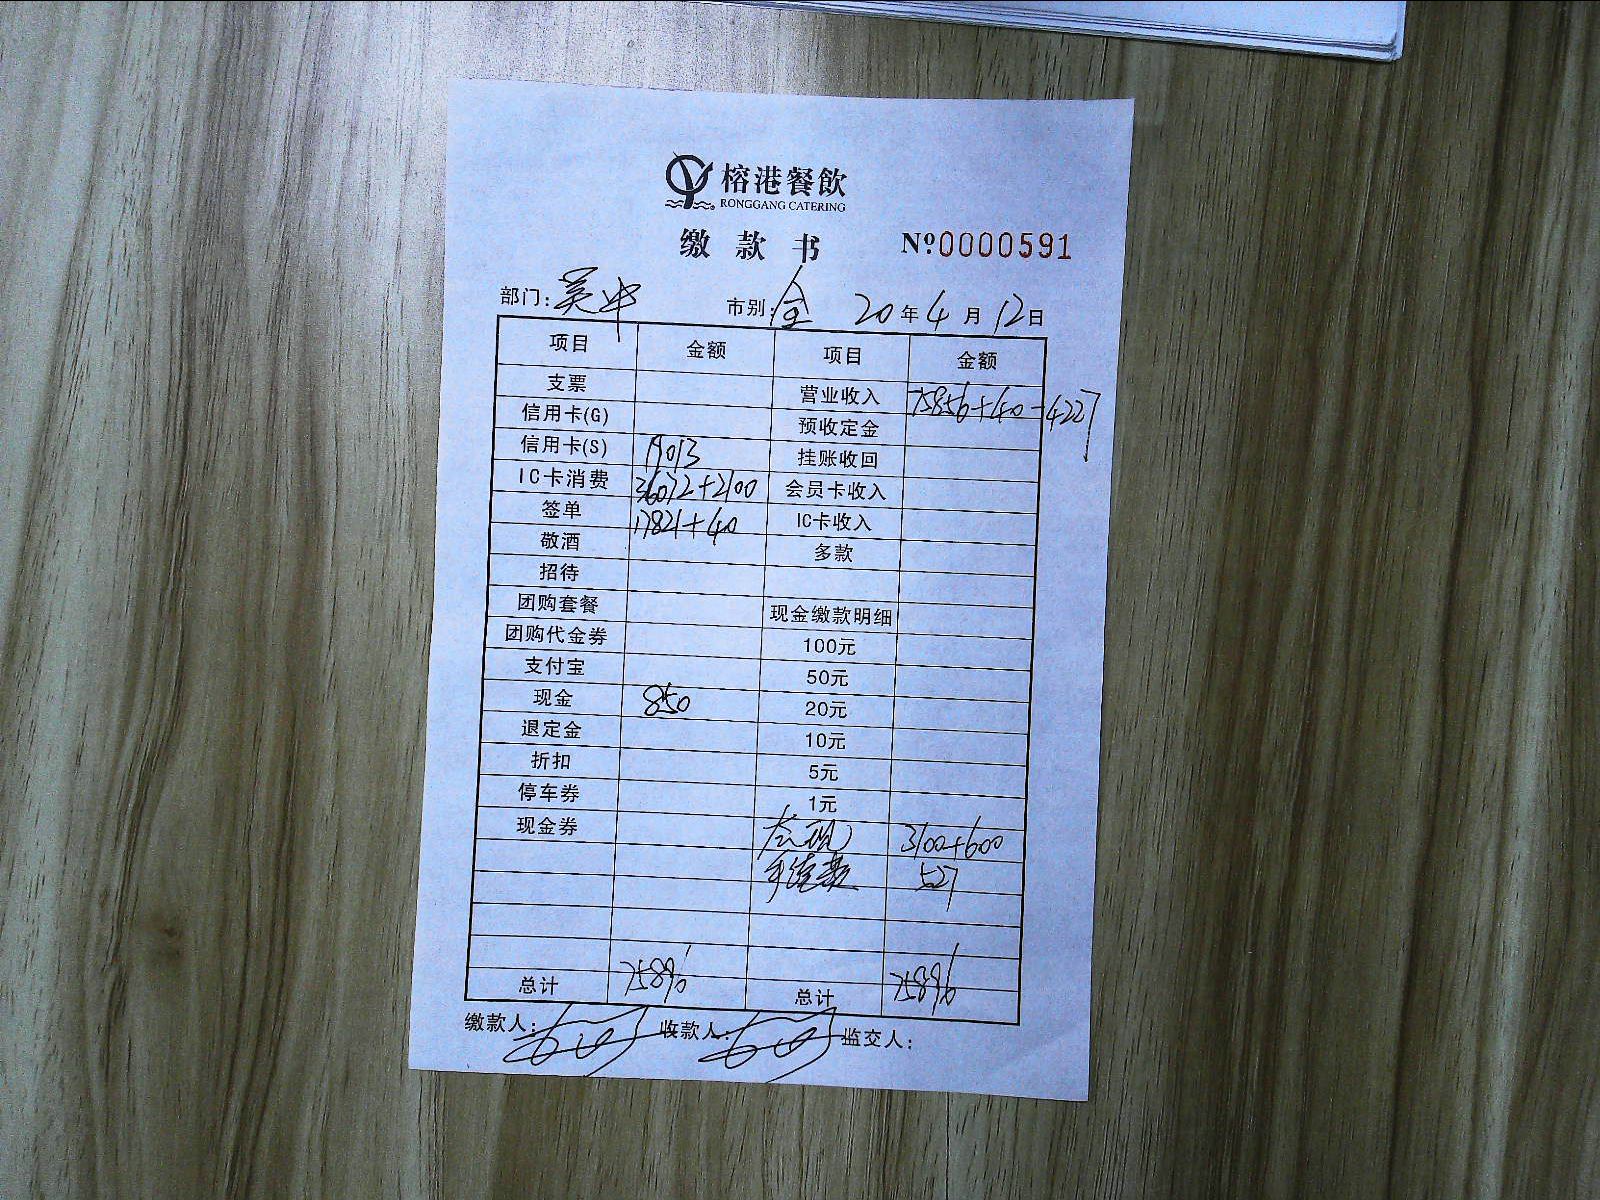 榕港餐飲
RONGGANG CATERING
缴款书 №0000591
部门: 吴中 市别: 全 20年4月12日
项目 金额 项目 金额
支票 营业收入 75856+40-4227
信用卡(G) 预收定金
信用卡(S) 19013 挂账收回
IC卡消费 36072+2100 会员卡收入
签单 17821+40 IC卡收入
敬酒 多款
招待
团购套餐 现金缴款明细
团购代金券 100元
支付宝 50元
现金 850 20元
退定金 10元
折扣 5元
停车券 1元
现金券 套现 3100+600
手续费 527
总计 75896 总计 75896
缴款人: 收款人: 监交人: